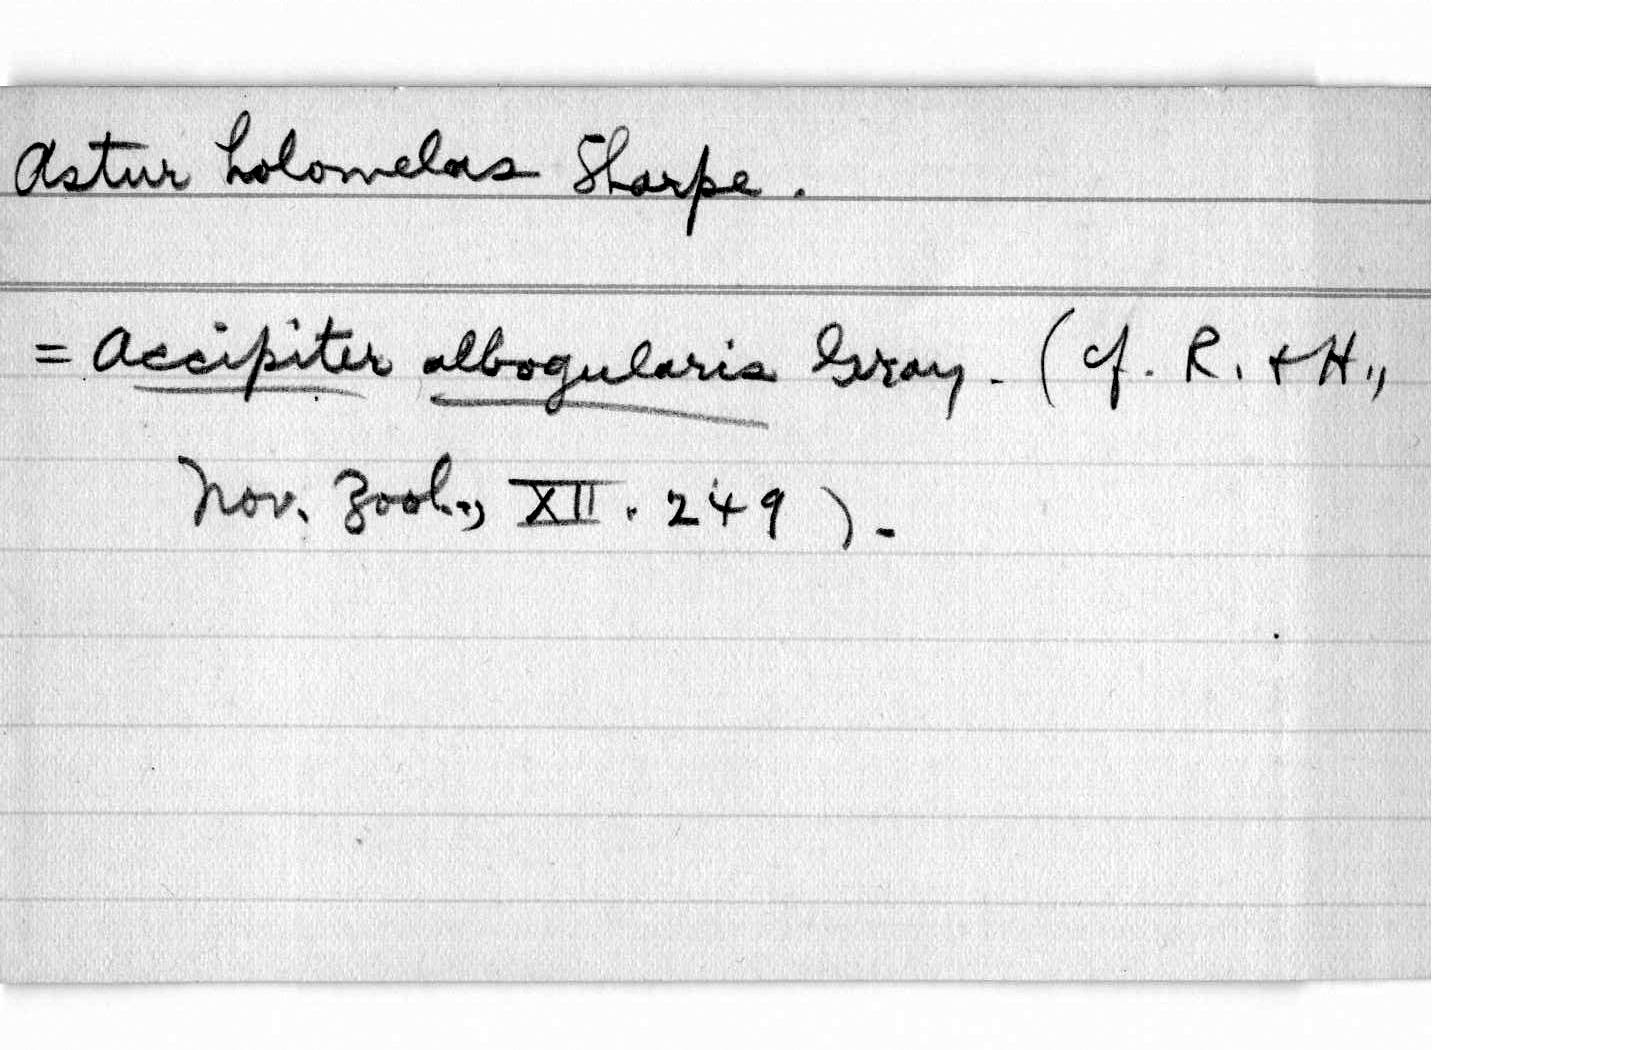 Astur holomelas Sharpe.
= Accipiter albogularis Gray. (cf. R. + H.,
Nov. Zool., XII. 249).